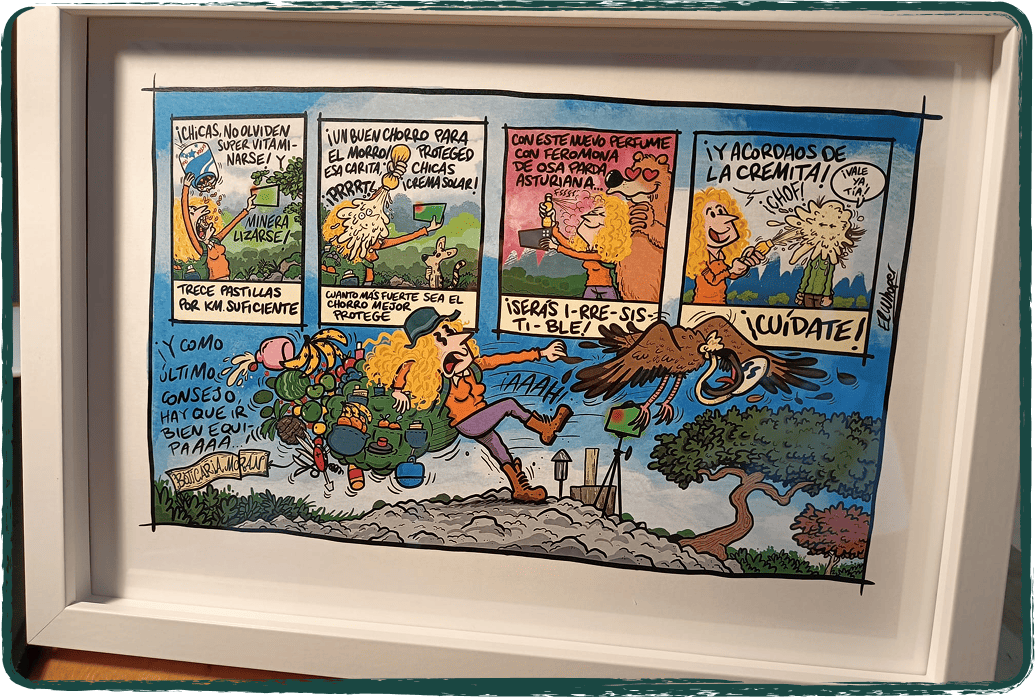 ¡CHICAS, NO OLVIDEN
SUPER VITAMI-
NARSE! Y
MINERA
LIZARSE!
TRECE PASTILLAS
POR KM. SUFICIENTE
¡UN BUEN CHORRO PARA
EL MORRO!
ESA CARITA,
PROTEGED
CHICAS
¡CREMA SOLAR!
¡PRRRT!
CUANTO MÁS FUERTE SEA EL
CHORRO MEJOR
PROTEGE
CON ESTE NUEVO PERFUME
CON FEROMONA
DE OSA PARDA
ASTURIANA...
FSSSS
¡SERÁS I-RRE-SIS-
TI-BLE!
¡Y ACORDAOS DE
LA CREMITA!
¡CHOF!
¡VALE
YA,
TÍA!
¡CUÍDATE!
¡Y COMO
ÚLTIMO
CONSEJO,
HAY QUE IR
BIEN EQUI-
PAAAA...
¡AAAH!
BOTICARIA.MORAN